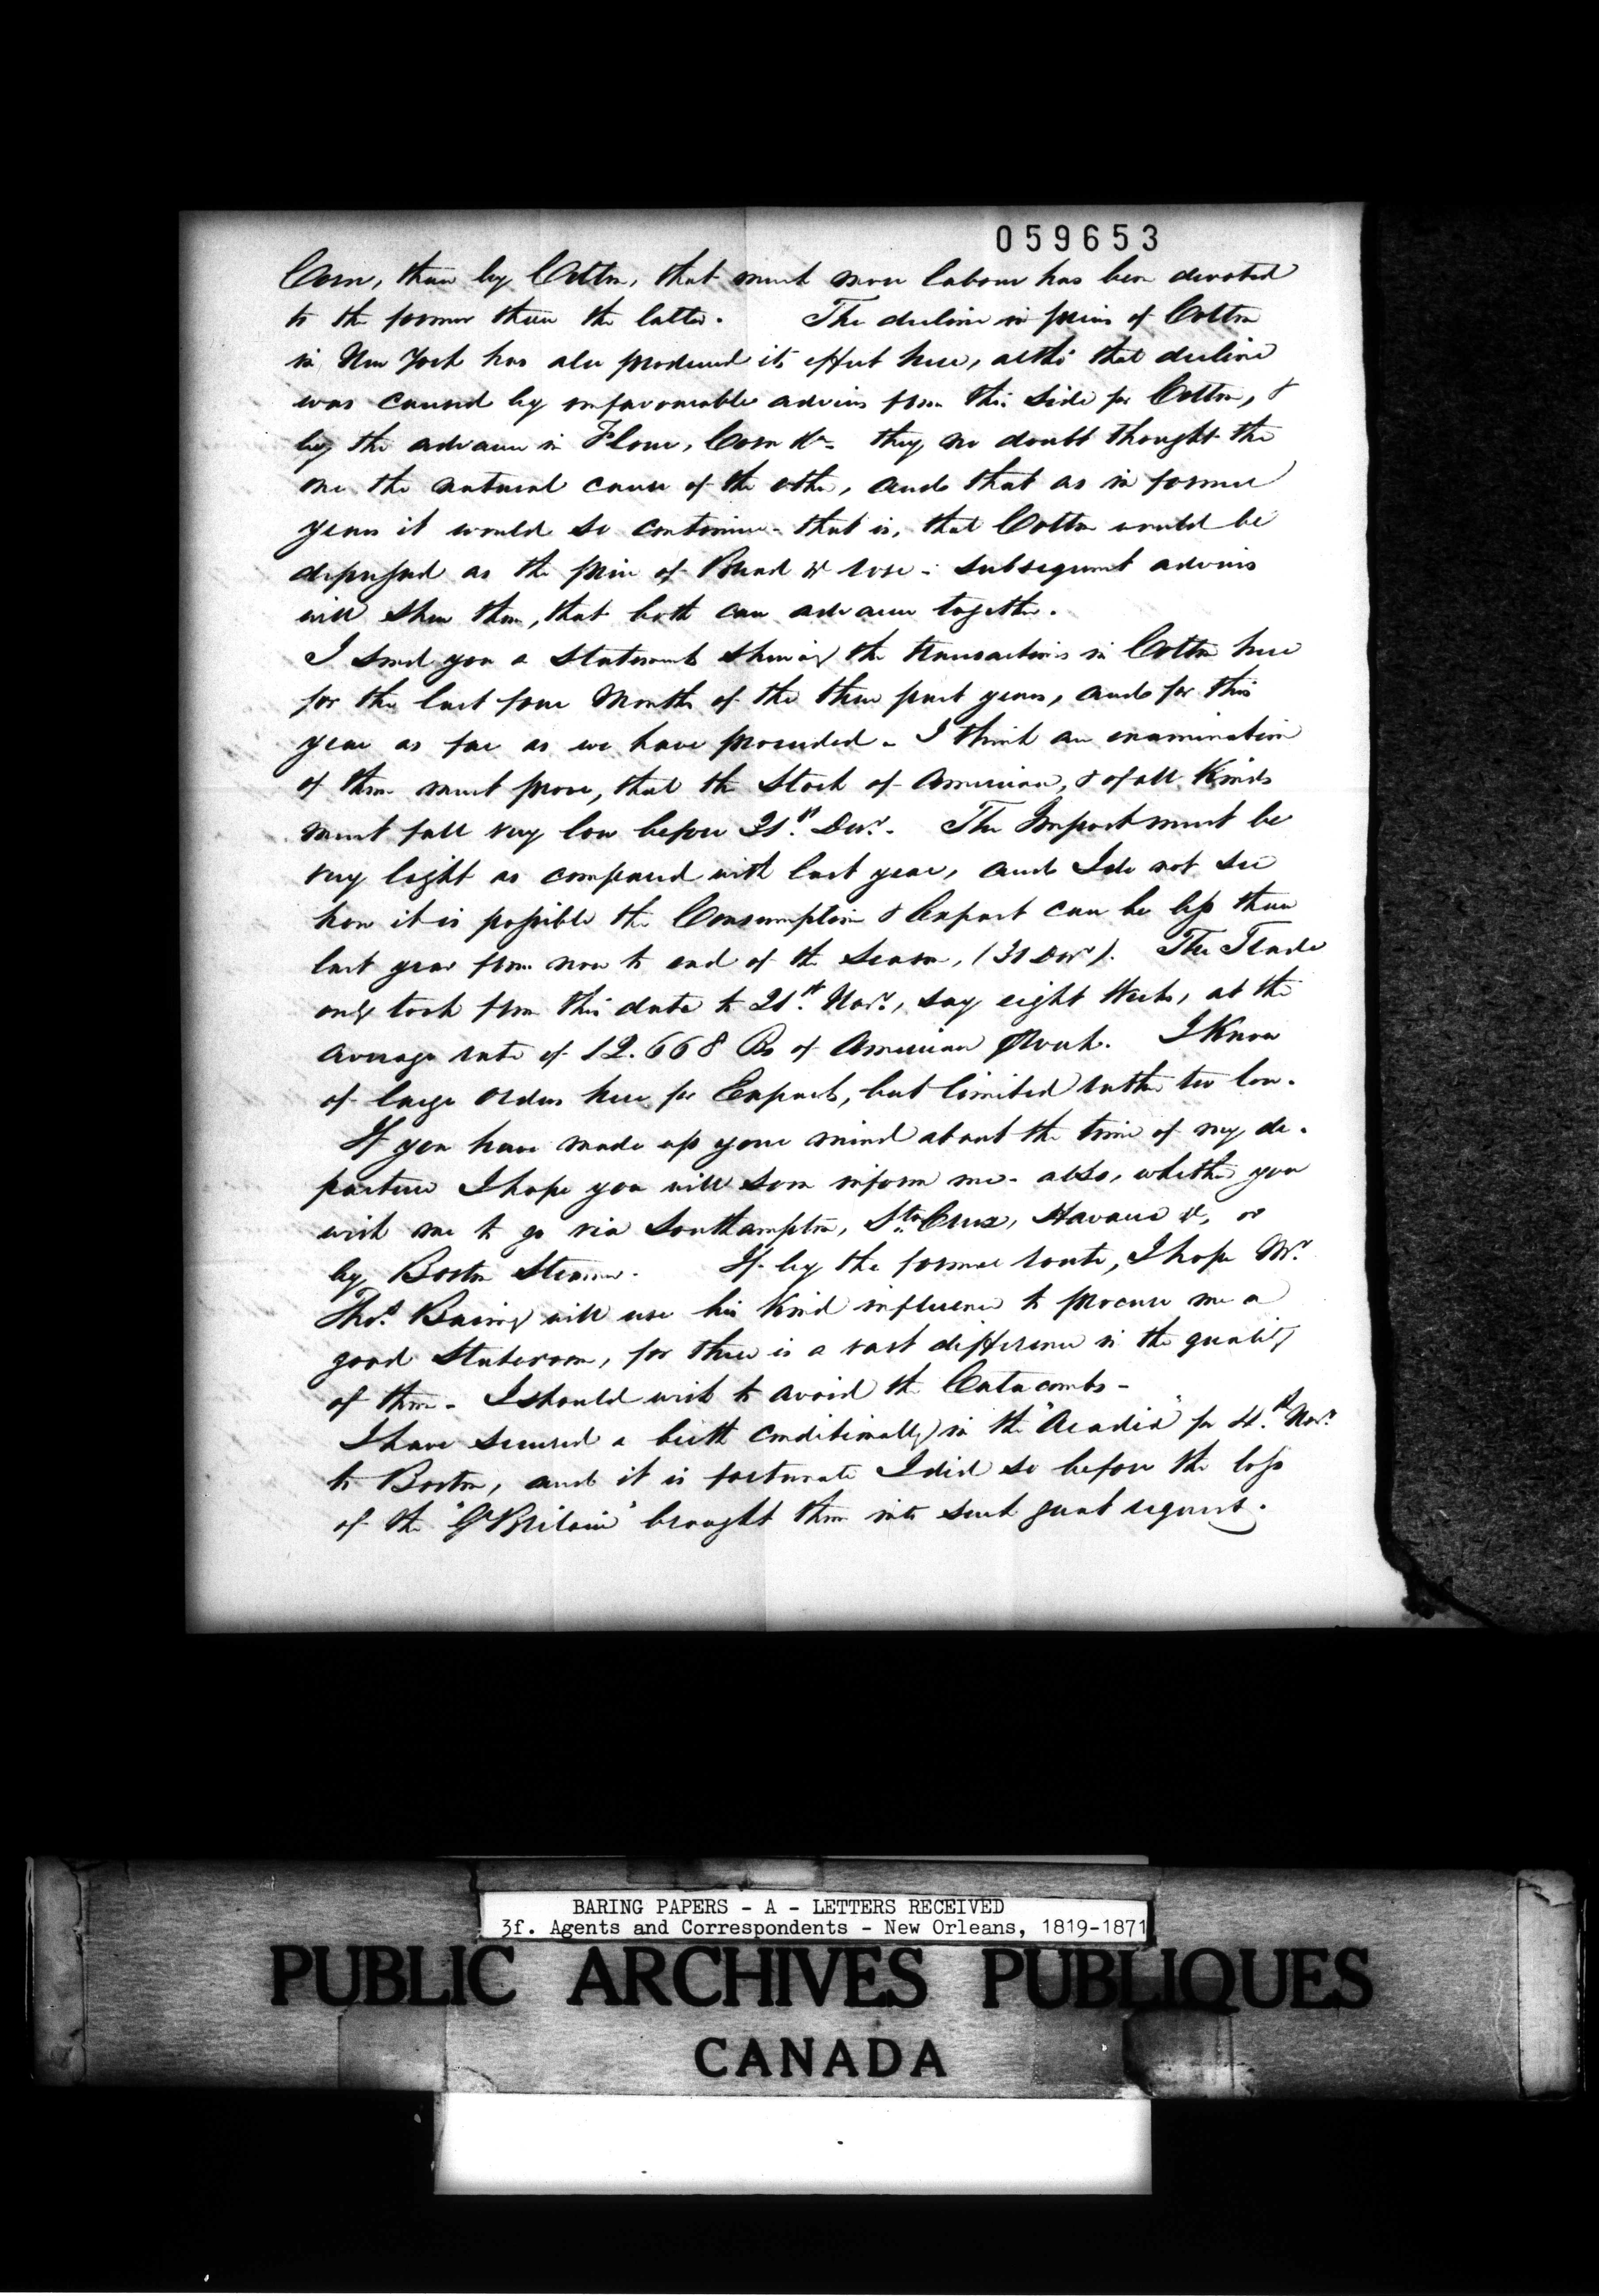 059653
Corn, than by Cotton, that much more labour has been devoted
to the former than the latter. The decline in prices of Cotton
in New York has also produced its effect here, altho' that decline
was caused by unfavourable advices from this side for Cotton, &
by the advance in Flour, Corn &c - they no doubt thought the
one the natural cause of the other, and that as in former
years it would so continue - that is, that Cotton would be
depressed as the price of Bread &c rose - subsequent advices
will shew them, that both can advance together.
I send you a statement shewing the transactions in Cotton here
for the last four Months of the three past years, and for this
year as far as we have proceeded - I think an examination
of them must prove, that the Stock of American, & of all Kinds
must fall very low before 31st Decr. The Import must be
very light as compared with last year, and I do not see
how it is possible the Consumption & Export can be less than
last year from now to end of the Season, (31 Decr). The Trade
only took from this date to 21st Novr, say eight Weeks, at the
average rate of 12.668 Bs of American Week. I Know
of large orders here for Export, but limited rather too low.
If you have made up your mind about the time of my de-
parture I hope you will soon inform me - also, whether you
wish me to go via Southampton, Sta Cruz, Havana &c, or
by Boston Steamer. If by the former route, I hope Mr
Thos. Baring will use his Kind influence to procure me a
good Stateroom, for there is a vast difference in the quality
of them - I should wish to avoid the Catacombs -
I have secured a birth conditionally in the "Acadia" for 4th Novr
to Boston, and it is fortunate I did so before the loss
of the "Gt Britain" brought them into such great request.
BARING PAPERS - A - LETTERS RECEIVED
3f. Agents and Correspondents - New Orleans, 1819-1871
PUBLIC ARCHIVES PUBLIQUES
CANADA